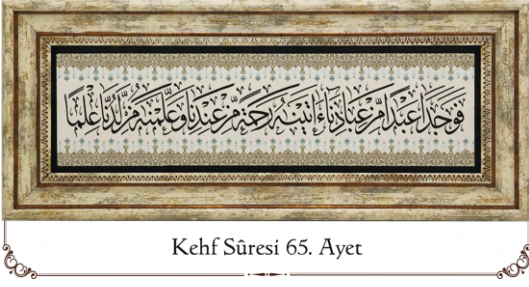 فَوَجَدَا عَبْدًا مِّنْ عِبَادِنَآ ءَاتَيْنَٰهُ رَحْمَةً مِّنْ عِندِنَا وَعَلَّمْنَٰهُ مِن لَّدُنَّا عِلْمًا
Kehf Sûresi 65. Ayet